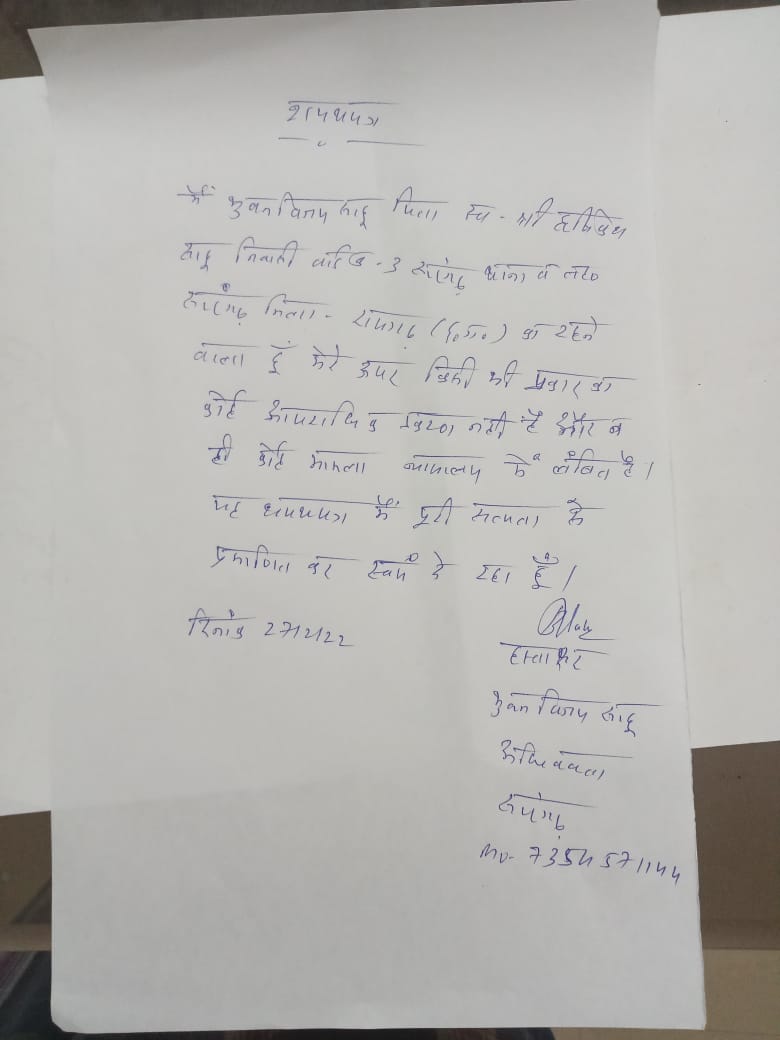 शपथपत्र
मैं भुवन विजय साहू पिता स्व - श्री
साहू निवासी वार्ड क्र - 3 थाना व तह०
जिला - रायगढ़ (छ.ग.) का रहने
वाला हूँ मेरे ऊपर किसी भी प्रकार का
कोई आपराधिक विवरण नही है और न
ही कोई मामला न्यायालय में लंबित है।
यह शपथपत्र मैं पूरी सत्यता से
प्रमाणित कर स्वयं दे रहा हूँ।
दिनांक 27/2/22
हस्ताक्षर
भुवन विजय साहू
अधिवक्ता
Mo- 7354571144